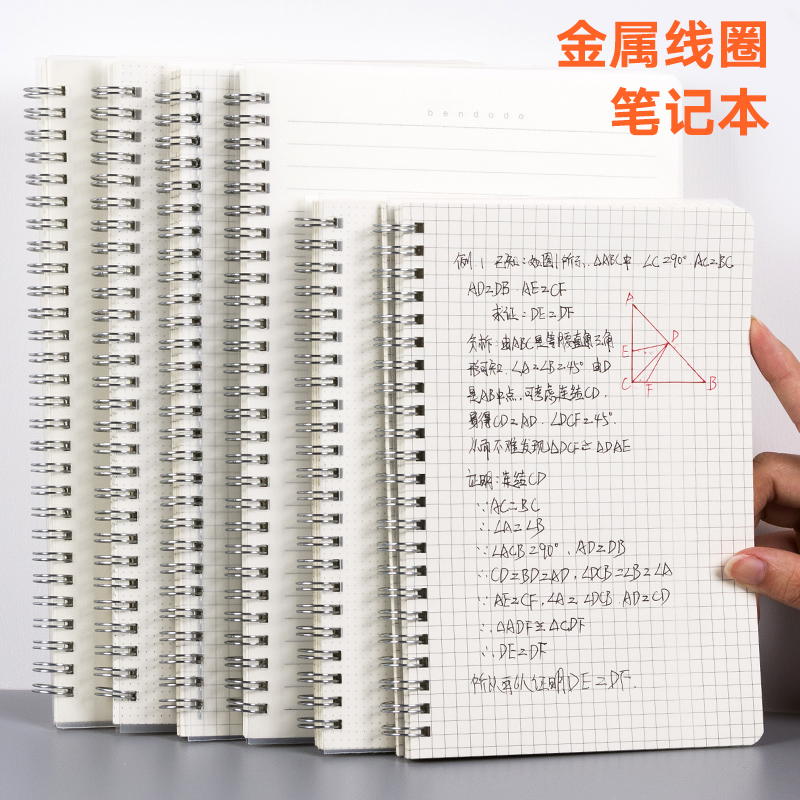 金属线圈
笔记本
bendodo
例1 已知:如图1所示,△ABC中 ∠C=90° AC=BC
AD=DB AE=CF
求证:DE=DF
分析:由ABC是等腰直角三角
形可知,∠A=∠B=45° 由D
是AB中点,可考虑连结CD,
易得CD=AD,∠DCF=45°.
从而不难发现△DCF≌△DAE
证明:连结CD
∵AC=BC
∴∠A=∠B
∵∠ACB=90°,AD=DB
∴CD=BD=AD,∠DCB=∠B=∠A
∵AE=CF,∠A=∠DCB AD=CD
∴△ADF≌△CDF
∴DE=DF
所以可以证明DE=DF.
A
D
E
C
F
B